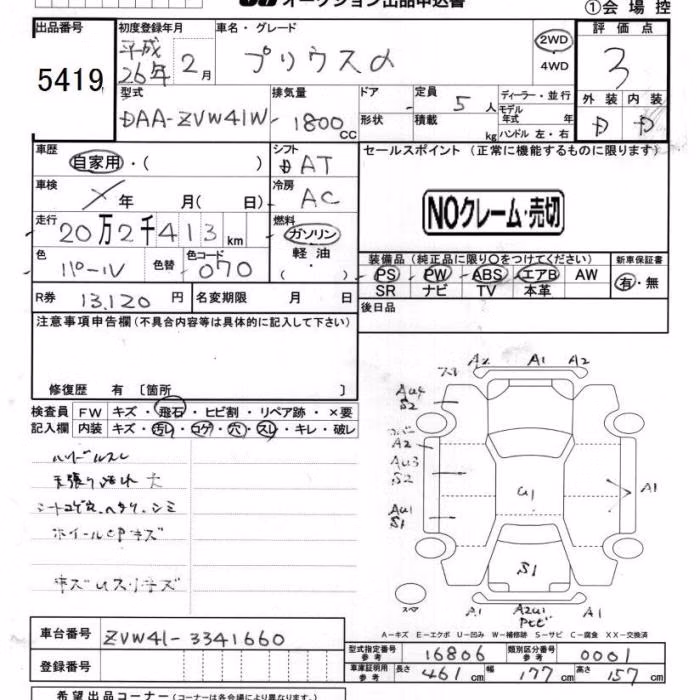 オークション出品申込書
①会場控
出品番号 初度登録年月 車名・グレード 評価点
5419 平成26年2月 プリウスα 2WD・4WD 3
外装 内装
D D
型式 排気量 ドア 定員 ディーラー・並行
DAA-ZVW41W 1800CC 形状 5人 モデル年式 年
積載 kg ハンドル 左・右
車歴 シフト セールスポイント(正常に機能するものに限ります)
自家用・( ) DAT
車検 年 月( 日) 冷房 AC
NOクレーム・売切
走行 20万2千413km 燃料 ガソリン・軽油
( )
色 パール 色替 色コード 070
装備品(純正品に限り○をつけてください) 新車保証書
PS PW ABS エアB AW 有・無
SR ナビ TV 本革
R券 13,120円 名変期限 月 日 後日品
注意事項申告欄(不具合内容等は具体的に記入して下さい)
修復歴 有〔箇所 〕
検査員 FW キズ・飛石・ヒビ割・リペア跡・×要
記入欄 内装 キズ・汚レ・コゲ・穴・スレ・キレ・破レ
ハンドルスレ
天張り汚れ 大
シートコゲ穴、ヘタリ、シミ
ホイールキズ
A2 A1 A2
S2
A2
Au3
S2
Au1
S1
U1
A1
S1
スペア
A1 A2U1 A1
A―キズ E―エクボ U―凹み W―補修跡 S―サビ C―腐食 XX―交換済
車台番号 ZVW41-3341660
登録番号
型式指定番号 参考 16806 類別区分番号 参考 0001
車庫証明用 参考 長さ 461cm 幅 177cm 高さ 157cm
希望出品コーナー(コーナーは各会場により異なります)